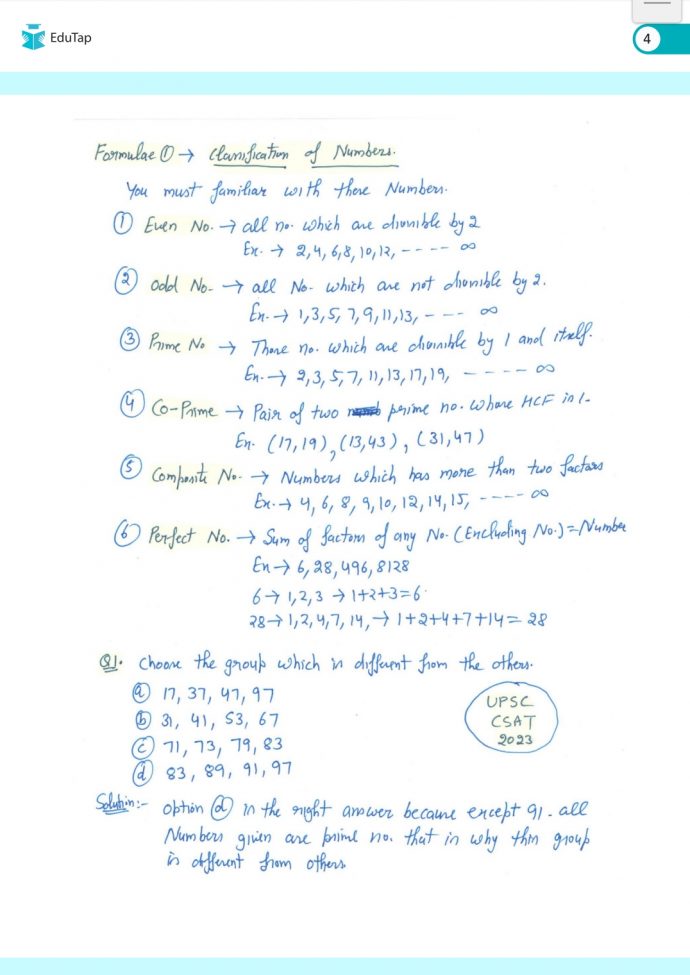 EduTap
4
Formulae ① → Classification of Numbers.
You must familiar with these Numbers.
① Even No. → all no. which are divisible by 2
Ex. → 2, 4, 6, 8, 10, 12, ---- ∞
② Odd No. → all No. which are not divisible by 2.
Ex. → 1, 3, 5, 7, 9, 11, 13, --- ∞
③ Prime No → Those no. which are divisible by 1 and itself.
Ex. → 2, 3, 5, 7, 11, 13, 17, 19, ---- ∞
④ Co-Prime → Pair of two prime no. whose HCF is 1.
Ex. (17, 19), (13, 43), (31, 47)
⑤ Composite No. → Numbers which has more than two factors
Ex. → 4, 6, 8, 9, 10, 12, 14, 15, ---- ∞
⑥ Perfect No. → Sum of factors of any No. (Excluding No.) = Number
Ex → 6, 28, 496, 8128
6 → 1, 2, 3 → 1+2+3=6.
28 → 1, 2, 4, 7, 14, → 1+2+4+7+14 = 28
Q1. Choose the group which is different from the others.
ⓐ 17, 37, 47, 97
ⓑ 31, 41, 53, 67
ⓒ 71, 73, 79, 83
ⓓ 83, 89, 91, 97
UPSC
CSAT
2023
Solution:- option ⓓ is the right answer because except 91. all
Numbers given are prime no. that is why this group
is different from others.